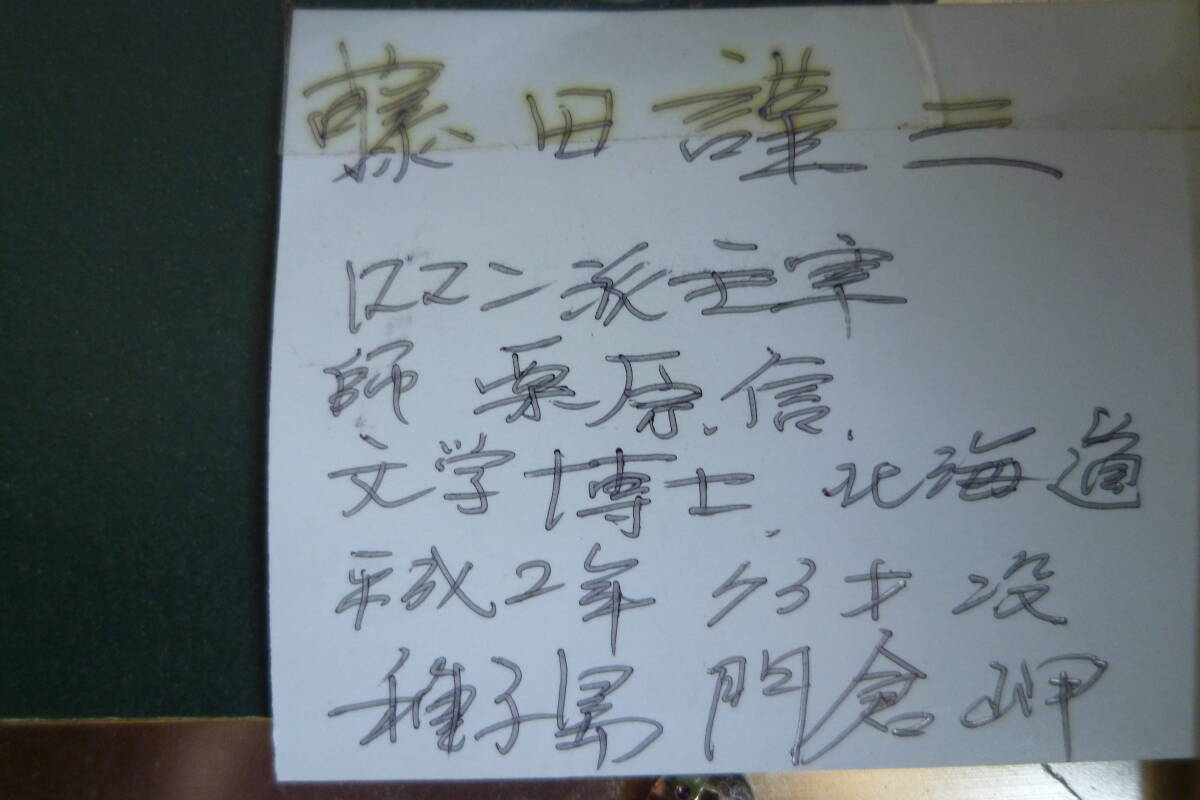 藤田謹三
ロマン派主宰
師 栗原信
文学博士 北海道
平成2年 93才没
種子島 門倉岬